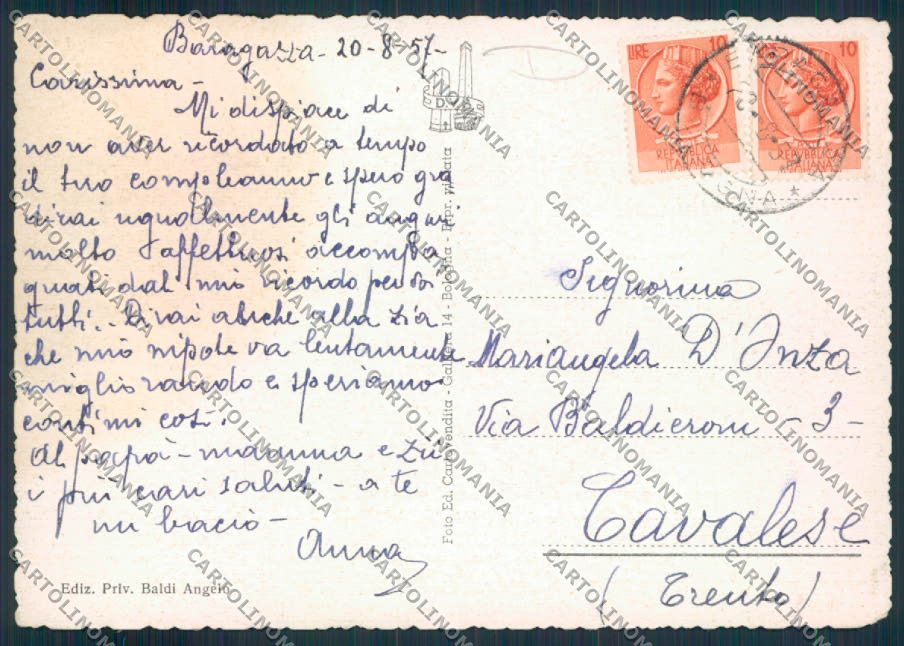 Baragazza - 20-8-57-
Carissima -
Mi dispiace di
non aver ricordato a tempo
il tuo compleanno e spero gra
dirai ugualmente gli auguri
molto affettuosi accompa
gnati dal mio ricordo per voi
tutti.. Dirai anche alla zia
che mio nipote va lentamente
migliorando e speriamo
continui così.
Al papà - mamma e zii
i più cari saluti - a te
un bacio -
Anna
Ediz. Priv. Baldi Angelo
Foto Ed. Cart. vendita - Galliera 14 - Bologna - Ripr. vietata
LIRE 10
REPVBBLICA
ITALIANA
10
REPVBBLICA
ITALIANA
Signorina
Mariangela D'Inza
Via Baldieroni - 3 -
Cavalese
(Trento)
CARTOLINOMANIA